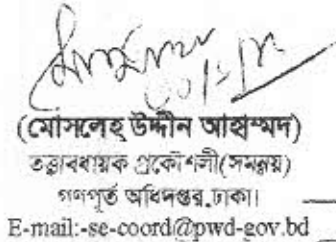 (মোসলেহ্ উদ্দীন আহাম্মদ)
তত্ত্বাবধায়ক প্রকৌশলী(সমন্বয়)
গণপূর্ত অধিদপ্তর,ঢাকা।
E-mail:-se-coord@pwd-gov.bd